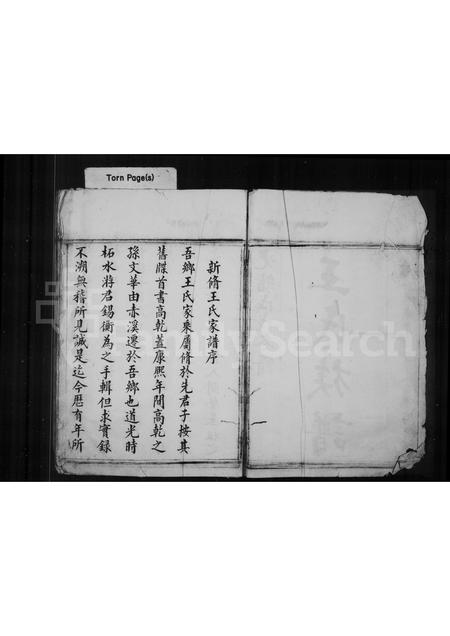 Torn Page(s)
新脩王氏家譜序
吾鄉王氏家乘屬脩於先君子按其
舊牒首書高乾蓋康熙年間高乾之
孫文華由赤溪遷於吾鄉也道光時
柘水蔣君錫衡為之手輯但求實錄
不溯無稽所見誠是迄今曆有年所
FamilySearch